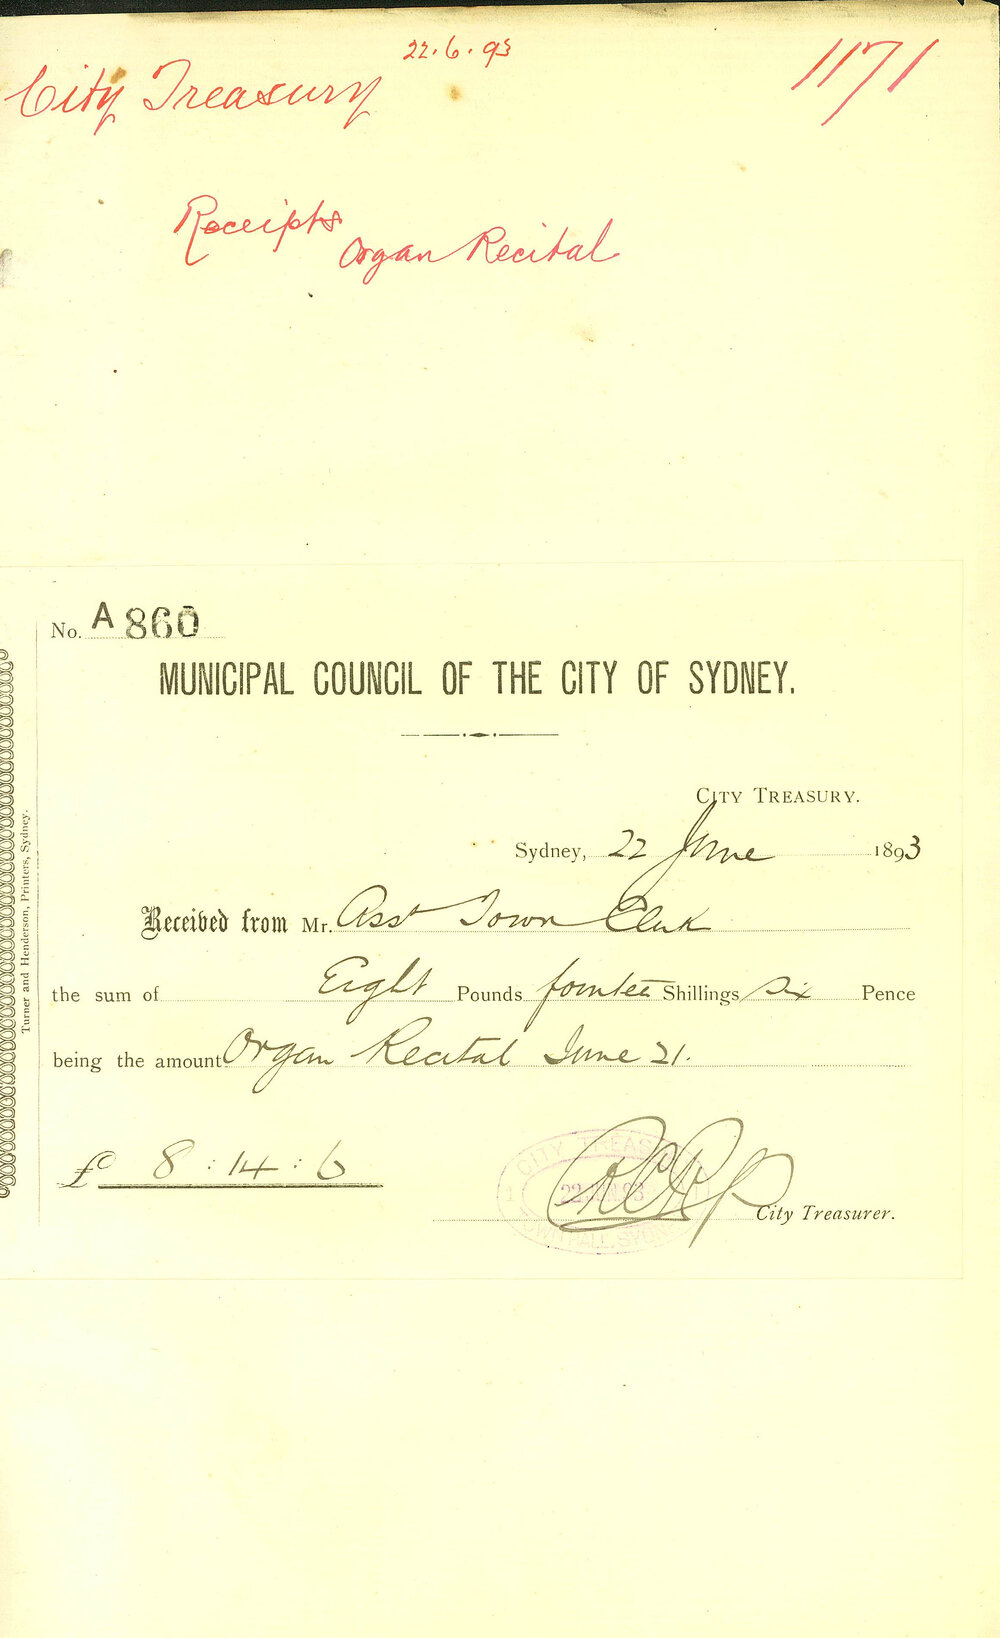 22.6.93
City Treasury
1171
Receipts
Organ Recital
No. A 860
MUNICIPAL COUNCIL OF THE CITY OF SYDNEY.
CITY TREASURY.
Sydney, 22 June 1893
Received from Mr. Asst Town Clerk
the sum of Eight Pounds fourteen Shillings six Pence
being the amount Organ Recital June 21.
£ 8 : 14 : 6
CITY TREASURY
22 JUN 93
TOWN HALL, SYDNEY
City Treasurer.
Turner and Henderson, Printers, Sydney.